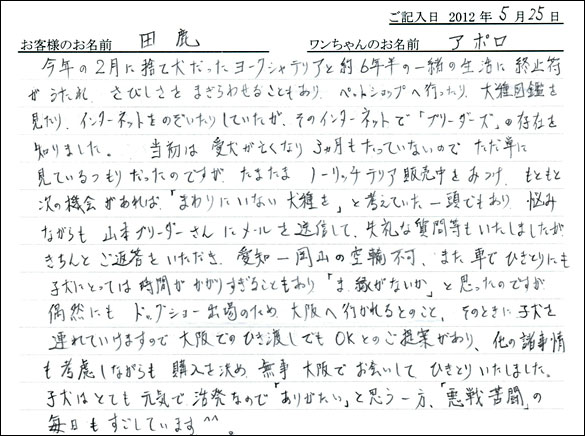 ご記入日 2012年 5月 25日
お客様のお名前 田鹿 ワンちゃんのお名前 アポロ
今年の2月に捨て犬だったヨークシャテリアと約6年半の一緒の生活に終止符
がうたれ、さびしさをまぎらわせることもあり、ペットショップへ行ったり、犬種図鑑を
見たり、インターネットをのぞいたりしていたが、そのインターネットで「ブリーダーズ」の存在を
知りました。 当初は愛犬が亡くなり3ヵ月もたっていないのでただ単に
見ているつもりだったのですが、たまたまノーリッチテリア販売中をみつけ、もともと
次の機会があれば、「まわりにいない犬種を」と考えていた一頭でもあり、悩み
ながらも山本ブリーダーさんにメールを送信して、失礼な質問等もいたしましたが、
きちんとご返答をいただき、愛知ー岡山の空輸不可、また車でひきとりにも
子犬にとっては時間がかかりすぎることもあり「ま、縁がないか」と思ったのですが
偶然にもドッグショー出場のため、大阪へ行かれるとのこと、そのときに子犬を
連れていけますので大阪でのひき渡しでもOKとのご提案があり、他の諸事情
も考慮しながらも購入を決め、無事大阪でお会いしてひきとりいたしました。
子犬はとても元気で活発なので「ありがたい」と思う一方、「悪戦苦闘」の
毎日もすごしています^^。